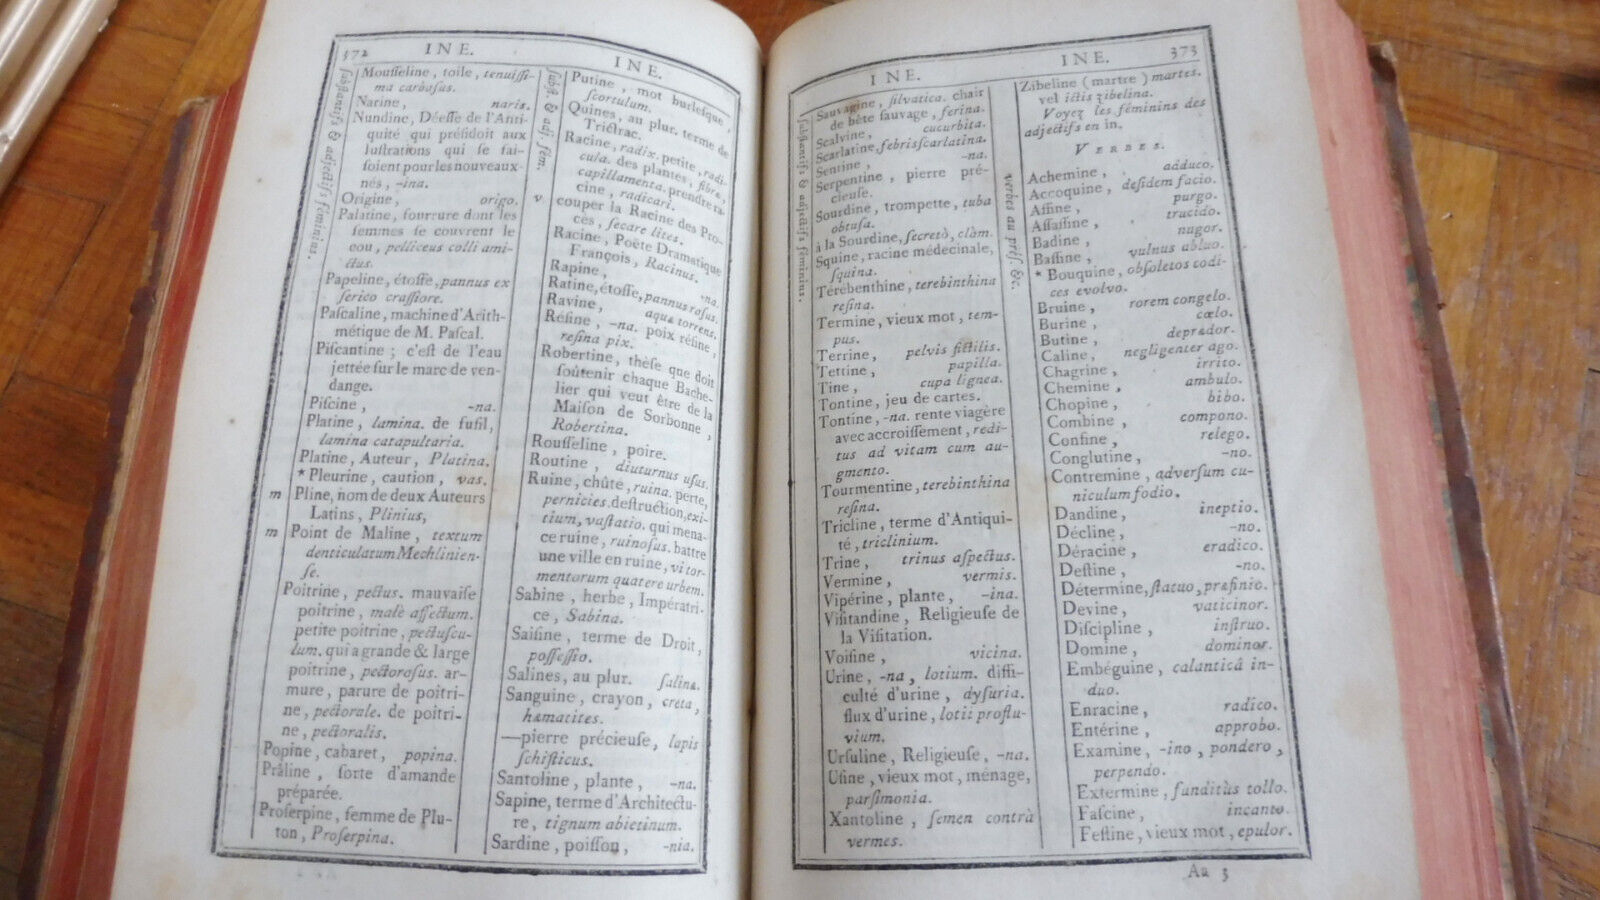 372 INE.
Mouſſeline, toile, tenuiſſi-
ma carbaſus.
Narine, naris.
Nundine, Déeſſe de l'Anti-
quité qui préſidoit aux
luſtrations qui ſe fai-
ſoient pour les nouveaux-
nés, -ina.
Origine, origo.
Palatine, fourrure dont les
femmes ſe couvrent le
cou, pelliceus colli ami-
ctus.
Papeline, étoffe, pannus ex
ſerico craſſiore.
Paſcaline, machine d'Arith-
métique de M. Paſcal.
Piſcantine; c'eſt de l'eau
jettée ſur le marc de ven-
dange.
Piſcine, -na.
Platine, lamina. de fuſil,
lamina catapultaria.
Platine, Auteur, Platina.
* Pleurine, caution, vas.
m Pline, nom de deux Auteurs
Latins, Plinius,
m Point de Maline, textum
denticulatum Mechlinien-
ſe.
Poitrine, pectus. mauvaiſe
poitrine, malè affectum.
petite poitrine, pectuſcu-
lum. qui a grande & large
poitrine, pectoroſus. ar-
mure, parure de poitri-
ne, pectorale. de poitri-
ne, pectoralis.
Popine, cabaret, popina.
Prâline, ſorte d'amande
préparée.
Proſerpine, femme de Plu-
ton, Proſerpina.
ſubſtantifs & adjectifs féminins.
INE.
Putine, mot burleſque,
ſcortulum.
Quines, au plur. terme de
Trictrac.
Racine, radix. petite, radi-
cula. des plantes, fibræ,
capillamenta. prendre ra-
cine, radicari.
v couper la Racine des Pro-
cès, ſecare lites.
Racine, Poëte Dramatique
François, Racinus.
Rapine, -na.
Ratine, étoffe, pannus raſus.
Ravine, aqua torrens.
Réſine, -na. poix réſine,
reſina pix.
Robertine, thèſe que doit
ſoûtenir chaque Bache-
lier qui veut être de la
Maiſon de Sorbonne,
Robertina.
Rouſſeline, poire.
Routine, diuturnus uſus.
Ruine, chûte, ruina. perte,
pernicies. deſtruction, exi-
tium, vaſtatio. qui mena-
ce ruine, ruinoſus. battre
une ville en ruine, vi tor-
mentorum quatere urbem.
Sabine, herbe, Impératri-
ce, Sabina.
Saiſine, terme de Droit,
poſſeſſio.
Salines, au plur. ſalinæ.
Sanguine, crayon, creta,
hæmatites.
—pierre précieuſe, lapis
ſchiſticus.
Santoline, plante, -na.
Sapine, terme d'Architectu-
re, tignum abietinum.
Sardine, poiſſon, -nia.
ſubſt. & adj. fém.
INE.
Sauvagine, ſilvatica. chair
de bête ſauvage, ferina.
Scalvine, cucurbita.
Scarlatine, febris ſcarlatina.
Sentine, -na.
Serpentine, pierre pré-
cieuſe.
Sourdine, trompette, tuba
obtuſa.
à la Sourdine, ſecretò, clàm.
Squine, racine médecinale,
ſquina.
Térébenthine, terebinthina
reſina.
Termine, vieux mot, tem-
pus.
Terrine, pelvis fictilis.
Tettine, papilla.
Tine, cupa lignea.
Tontine, jeu de cartes.
Tontine, -na. rente viagère
avec accroiſſement, redi-
tus ad vitam cum au-
gmento.
Tourmentine, terebinthina
reſina.
Tricline, terme d'Antiqui-
té, triclinium.
Trine, trinus aſpectus.
Vermine, vermis.
Vipérine, plante, -ina.
Viſitandine, Religieuſe de
la Viſitation.
Voiſine, vicina.
Urine, -na, lotium. diffi-
culté d'urine, dyſuria.
flux d'urine, lotii proflu-
vium.
Urſuline, Religieuſe, -na.
Uſine, vieux mot, ménage,
parſimonia.
Xantoline, ſemen contrà
vermes.
ſubſtantifs & adjectifs féminins.
INE. 373
Zibeline (martre) martes.
vel ictis zibelina.
Voyez les féminins des
adjectifs en in.
VERBES.
Achemine, adduco.
Accoquine, deſidem facio.
Affine, purgo.
Aſſaſſine, trucido.
Badine, nugor.
Baſſine, vulnus abluo.
* Bouquine, obſoletos codi-
ces evolvo.
Bruine, rorem congelo.
Burine, cœlo.
Butine, deprædor.
Caline, negligenter ago.
Chagrine, irrito.
Chemine, ambulo.
Chopine, bibo.
Combine, compono.
Confine, relego.
Conglutine, -no.
Contremine, adverſum cu-
niculum fodio.
Dandine, ineptio.
Décline, -no.
Déracine, eradico.
Deſtine, -no.
Détermine, ſtatuo, præfinio.
Devine, vaticinor.
Diſcipline, inſtruo.
Domine, dominor.
Embéguine, calanticâ in-
duo.
Enracine, radico.
Entérine, approbo.
Examine, -ino, pondero,
perpendo.
Extermine, funditùs tollo.
Faſcine, incanto.
Feſtine, vieux mot, epulor.
verbes au préſ. &c.
Aa 3